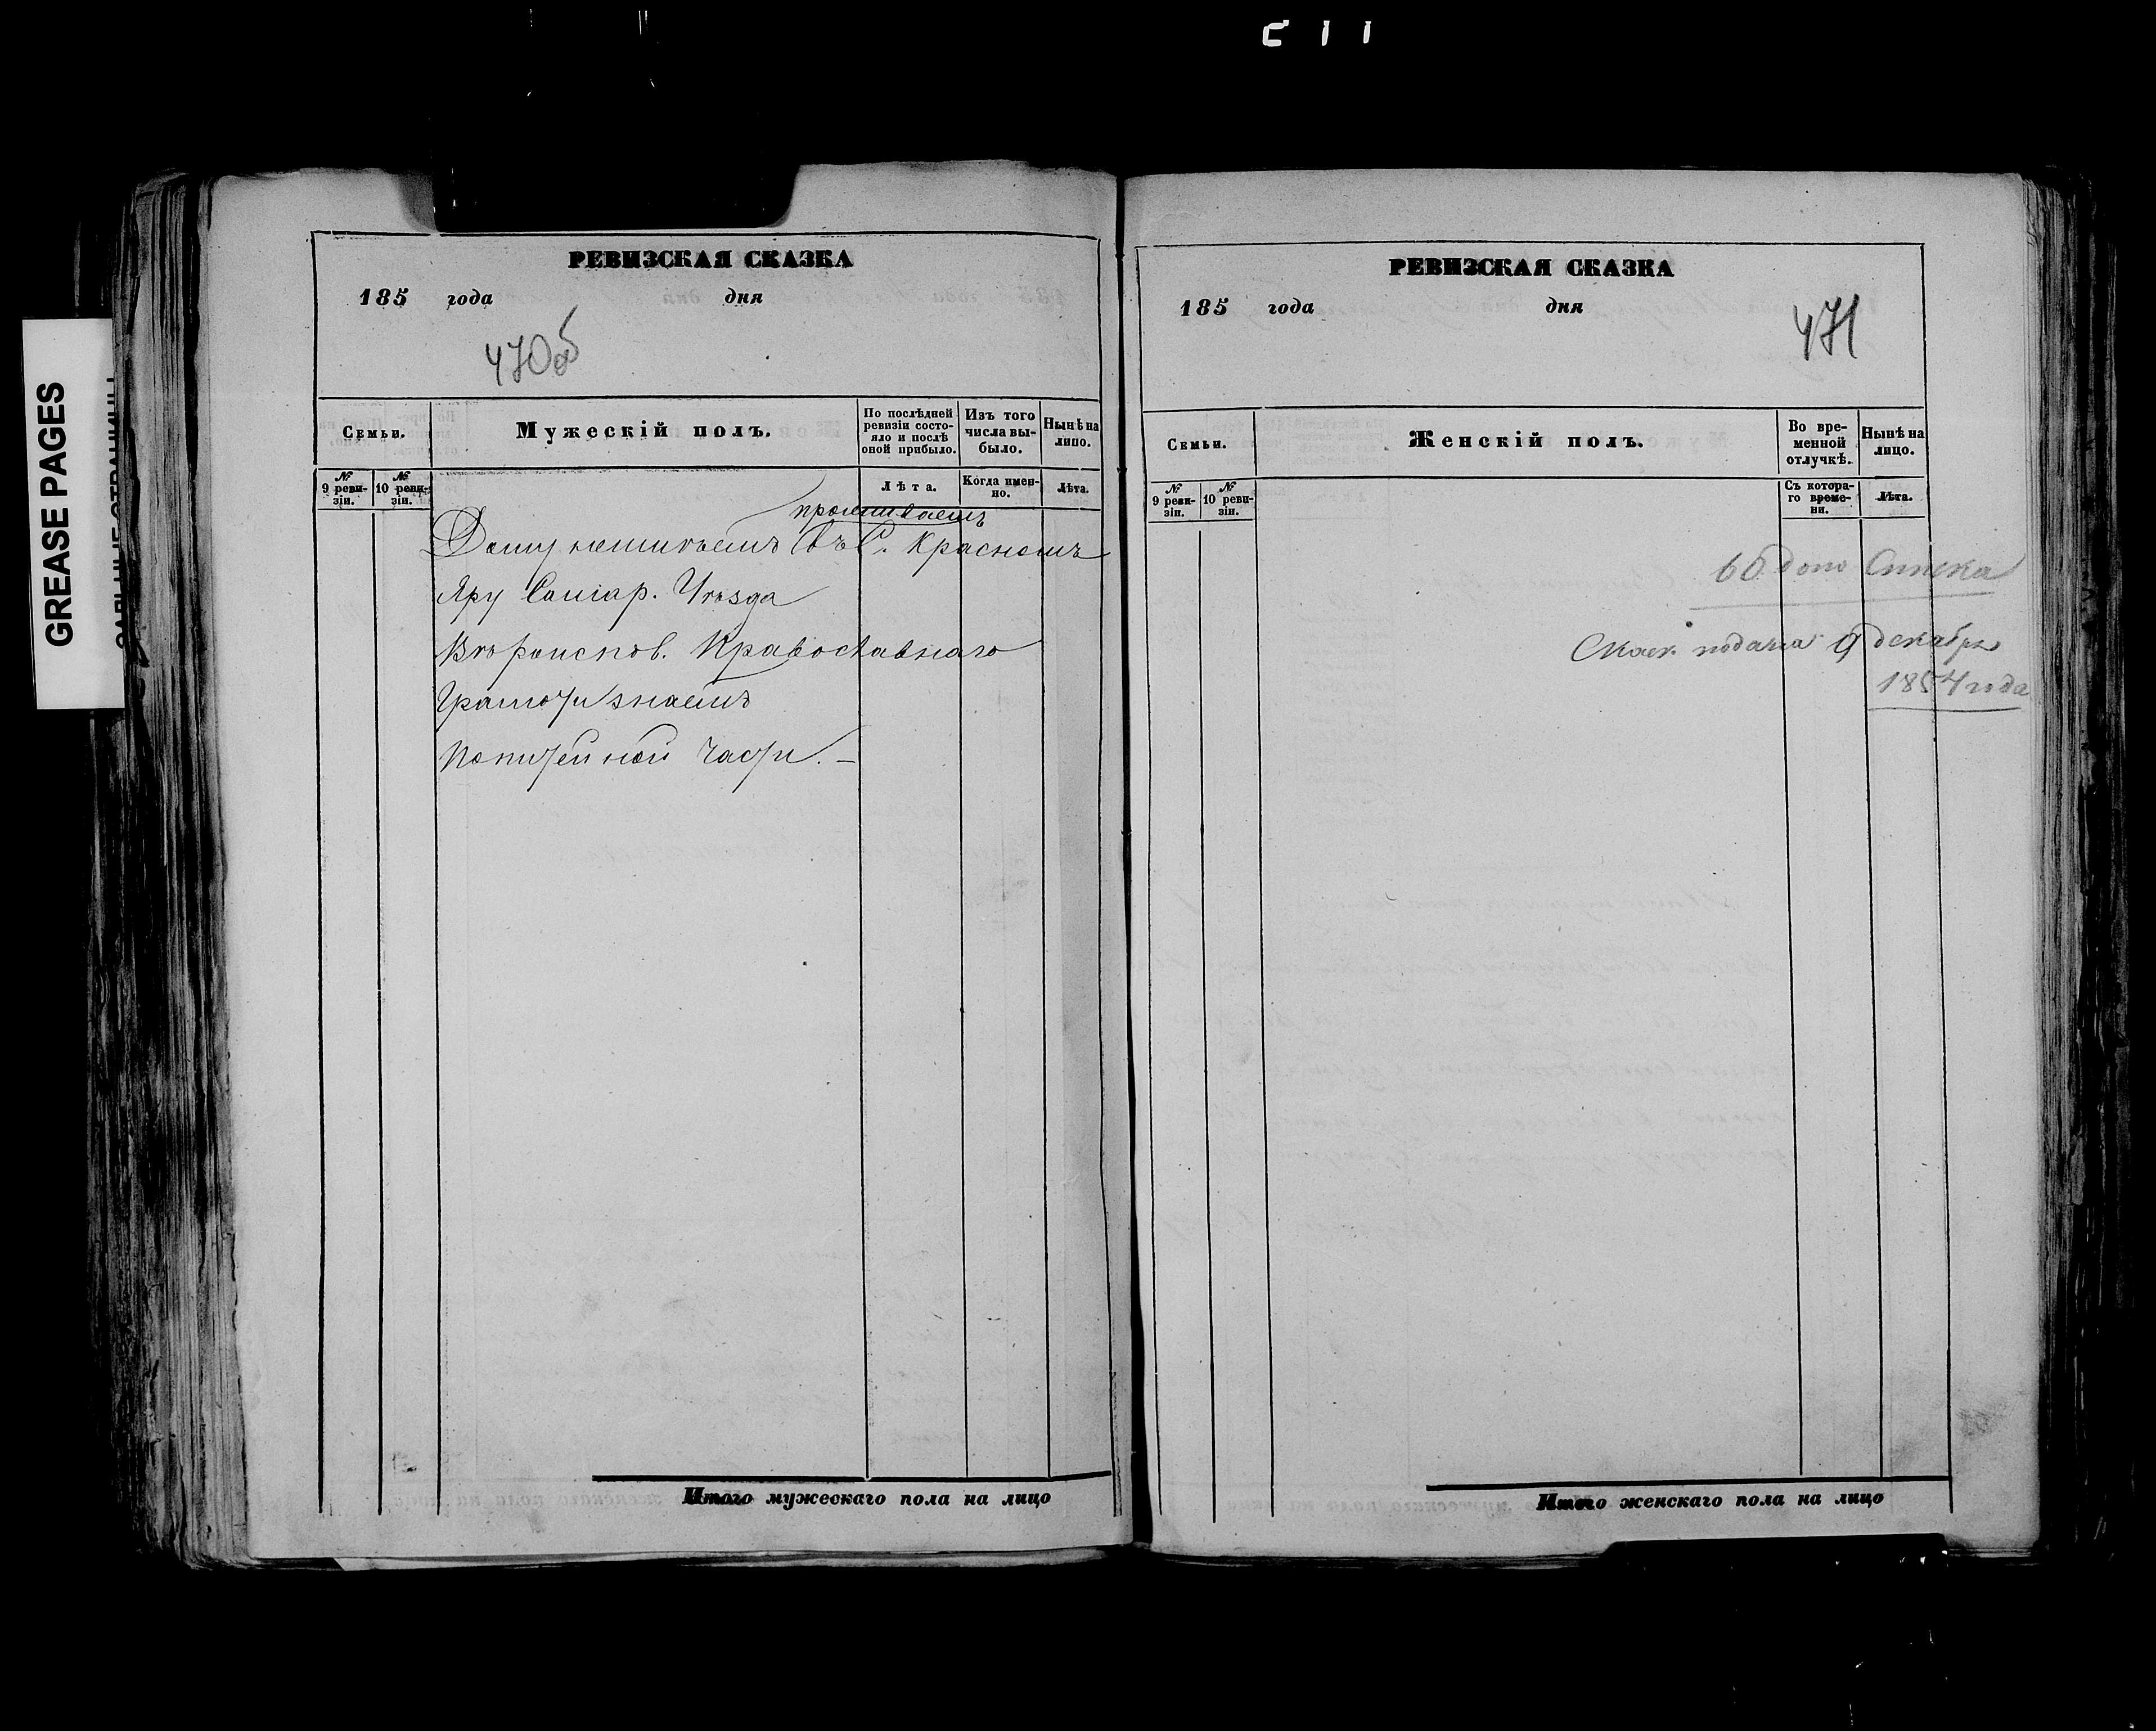 C 1 1
GREASE PAGES
РЕВИЗСКАЯ СКАЗКА
185 года дня
470об
Семьи.
Мужескій полъ.
По послѣдней ревизіи состояло и послѣ оной прибыло.
Изъ того числа выбыло.
Нынѣ на лицо.
№ 9 ревизіи.
№ 10 ревизіи.
Лѣта.
Когда именно.
Лѣта.
проживаетъ
Дому неимѣетъ въ С. Красномъ
Яру Самар. Уѣзда
Вѣроиспов. Православнаго
Грамоти знаетъ
Питейной части. –
Итого мужескаго пола на лицо
РЕВИЗСКАЯ СКАЗКА
185 года дня
471
Семьи.
Женскій полъ.
Во временной отлучкѣ.
Нынѣ на лицо.
№ 9 ревизіи.
№ 10 ревизіи.
Съ котораго времени.
Лѣта.
Списка
Сказ. подана 9 декабря
185 года
Итого женскаго пола на лицо